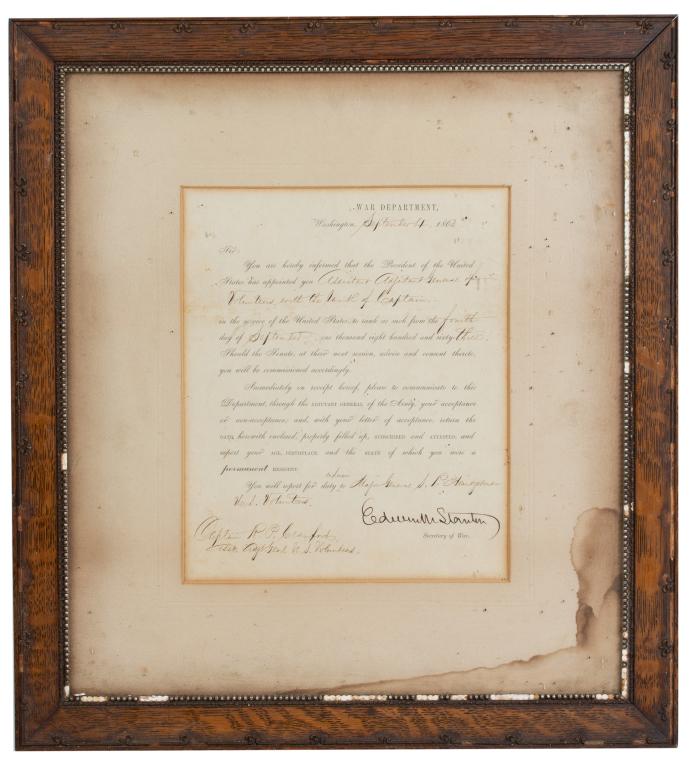 WAR DEPARTMENT,
Washington, September 4, 1863
Sir:
You are hereby informed that the President of the United
States has appointed you Assistant Adjutant General of
Volunteers, with the rank of Captain.
in the service of the United States, to rank as such from the fourth
day of September one thousand eight hundred and sixty three.
Should the Senate, at their next session, advise and consent thereto,
you will be commissioned accordingly.
Immediately on receipt hereof, please to communicate to this
Department, through the ADJUTANT GENERAL of the Army, your acceptance
or non-acceptance; and, with your letter of acceptance, return the
OATH, herewith enclosed, properly filled up, SUBSCRIBED and ATTESTED, and
report your AGE, BIRTHPLACE, and the STATE of which you were a
permanent RESIDENT.
You will report for duty to Major General S. P.
U.S. Volunteers.
Edwin M Stanton
Secretary of War.
Captain R. P.
Asst. Adjt Genl U. S. Volunteers.